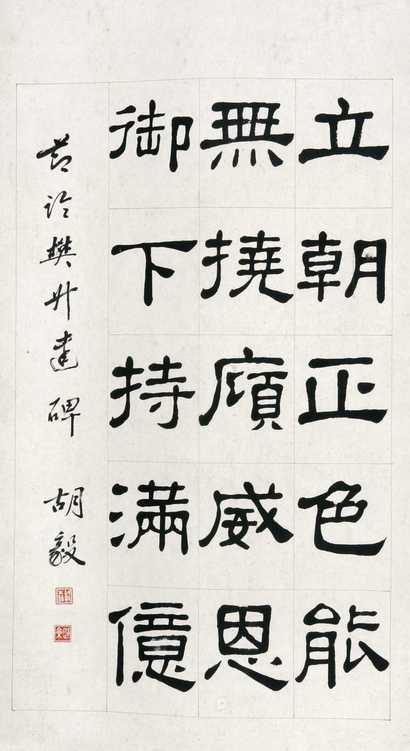 立朝正色能
無撓廎威恩
御下持滿億
節臨樊升達碑 胡毅